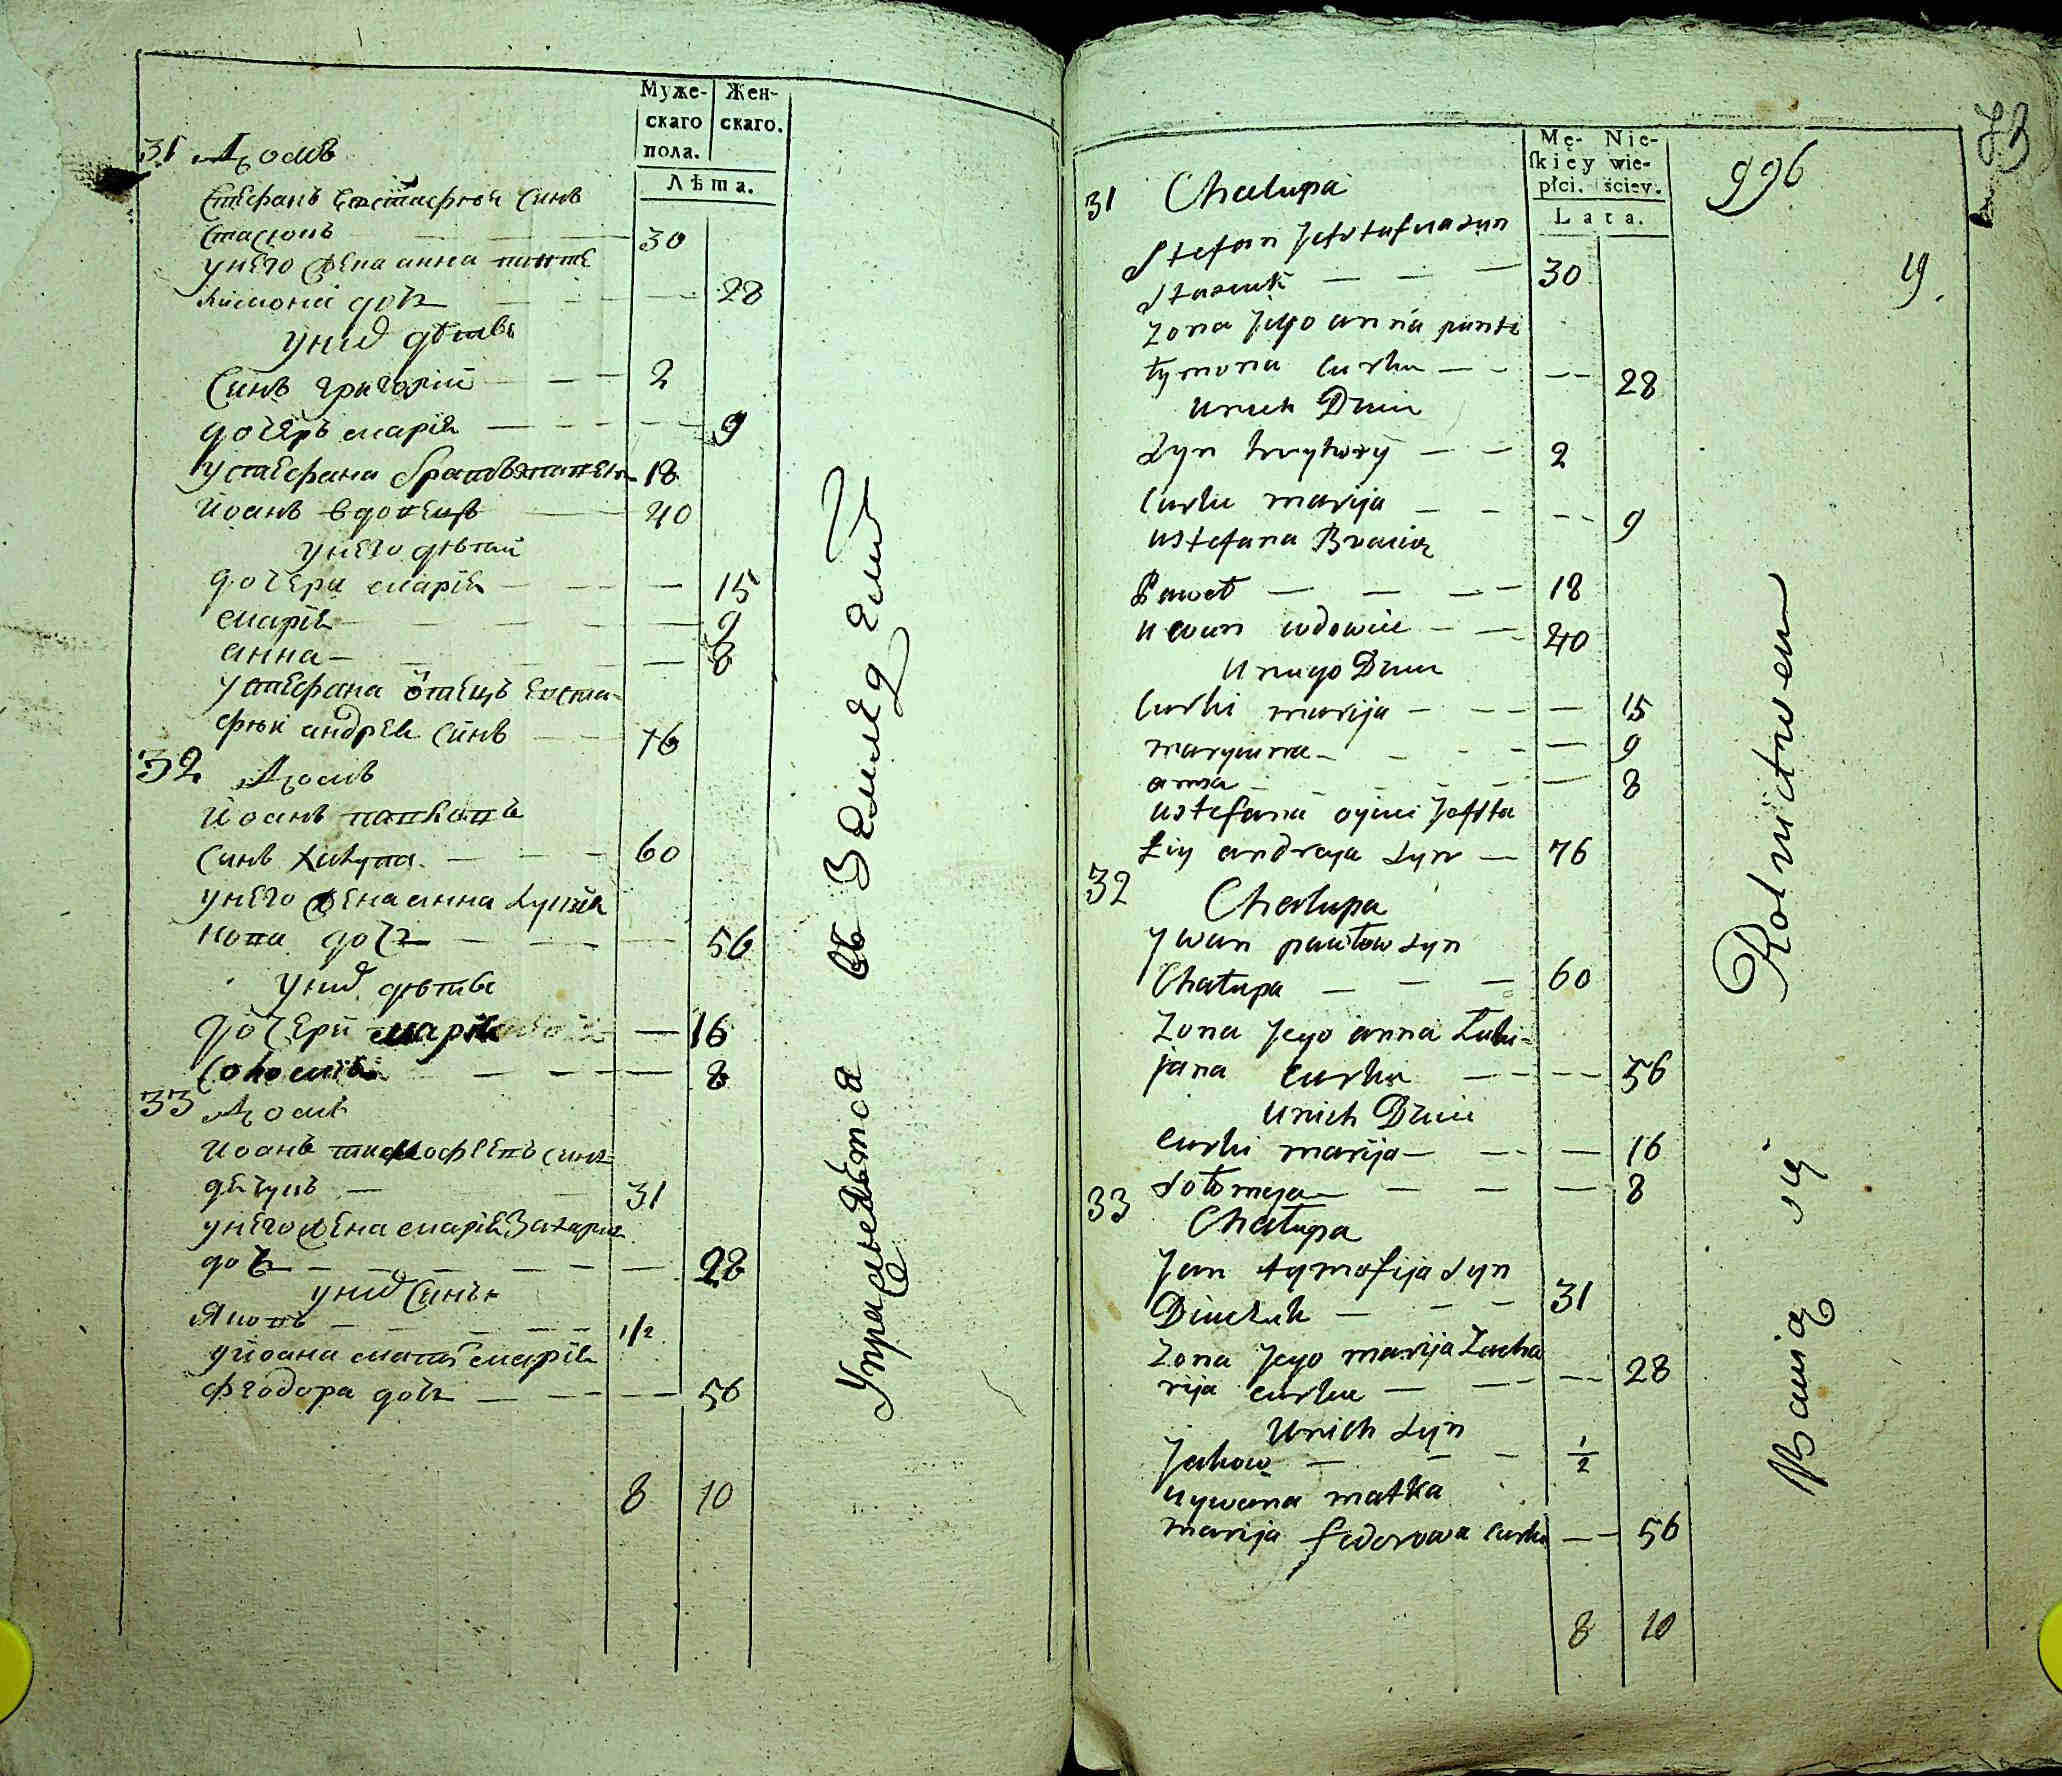 Муже- Жен-
скаго скаго.
пола.
Лѣта.
31 Домъ
Стефанъ Евстафіей Синъ
Стасюкъ — — — 30
унего жена анна
дочь — — — 28
унихъ дѣтеи
Синъ григорій — — 2
дочеръ маріѧ — — — 9
устефана братъ 18
Иоанъ вдовецъ — — 40
унего дѣтей
дочери маріѧ — — — 15
маріѧ — — — 9
анна — — — 8
устефана отецъ Евста-
фѣй андреѧ Синъ — — 76
32 Домъ
Иоанъ
Синъ Халупа — — — 60
унего жена анна Лукіѧ
нова дочь — — — 56
унихъ дѣтеи
дочери маріѧ — 16
Соломіѧ — — — 8
33 Домъ
Иоанъ тимофеевъ синъ
дячукъ — — 31
унего жена маріѧ Захаріи
дочь — — — 28
унихъ Синъ
Яковъ — — — 1/2
уйоана мать маріѧ
феодора дочь — — — 56
8 10
Упражняѣтся въ Земледелии
Mę- Nie-
ſkiey wie-
płci. ściey.
Lata.
996
73
19.
31 Chałupa
Stefan Jefstafija syn
Stasiuk — — — 30
Zona Jego anna pante
łymona curka — — — 28
Unich Dzieci
Syn hryhory — — 2
Curka marija — — — 9
Ustefana Bracia
Paweł — — — 18
Uwan wdowiec — — 40
Uniego Dzieci
Curki marija — — — 15
maryanna — — — 9
anna — — — 8
Ustefana ojciec Jefsta
fiy andreja syn — 76
32 Chałupa
Jwan pawłow syn
Chałupa — — — 60
Zona Jego anna Łuki-
jana curka — — — 56
Unich Dzieci
Curki marija — — — 16
Sołomeja — — — 8
33 Chałupa
Jan tymofija syn
Diaczuk — — — 31
Zona Jego marija Zacha
rija curka — — — 28
Unich syn
Jakow — — — 1/2
Uywana matka
marija fedorowa curka — — 56
8 10
Bawią się Rolnictwem